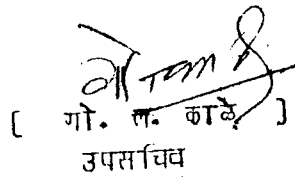 [ गो. ल. काळे ]
उपसचिव